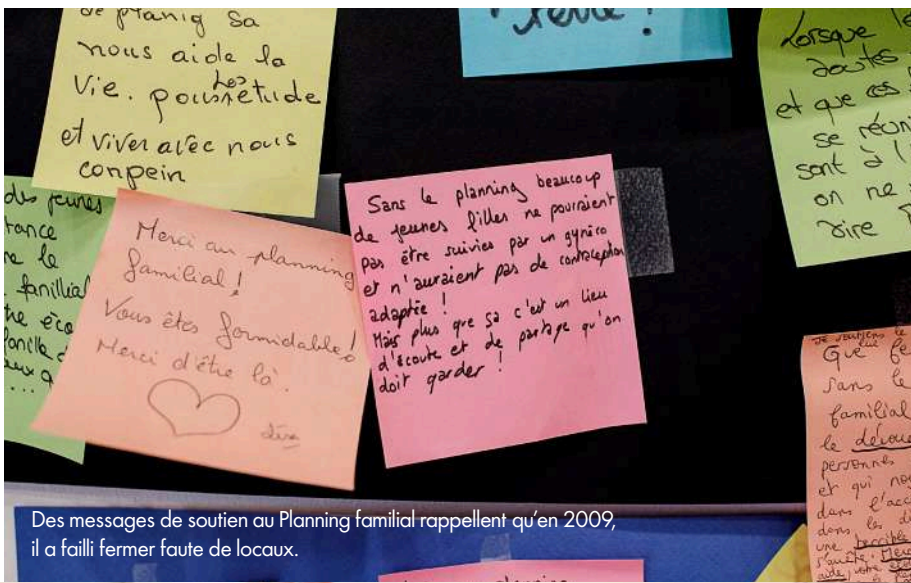 de planig Sa
nous aide la
Vie. Les étude
et viver avec nous
conpein
Lorsque le
doutes
et que ces
se réuni
sont à l'
on ne
dire
des jeunes
tance
le
famillial
Merci au planning
familial !
Vous êtes formidables !
Merci d'être là.
Sans le planning beaucoup
de jeunes filles ne pourraient
pas être suivies par un gynéco
et n'auraient pas de contraception
adaptée !
Mais plus que ça c'est un lieu
d'écoute et de partage qu'on
doit garder !
Je soutiens le
Que fe
sans le
familial
le dévoue
personnes
et qui
dans l'acc
dans les
une terrible
Des messages de soutien au Planning familial rappellent qu'en 2009,
il a failli fermer faute de locaux.